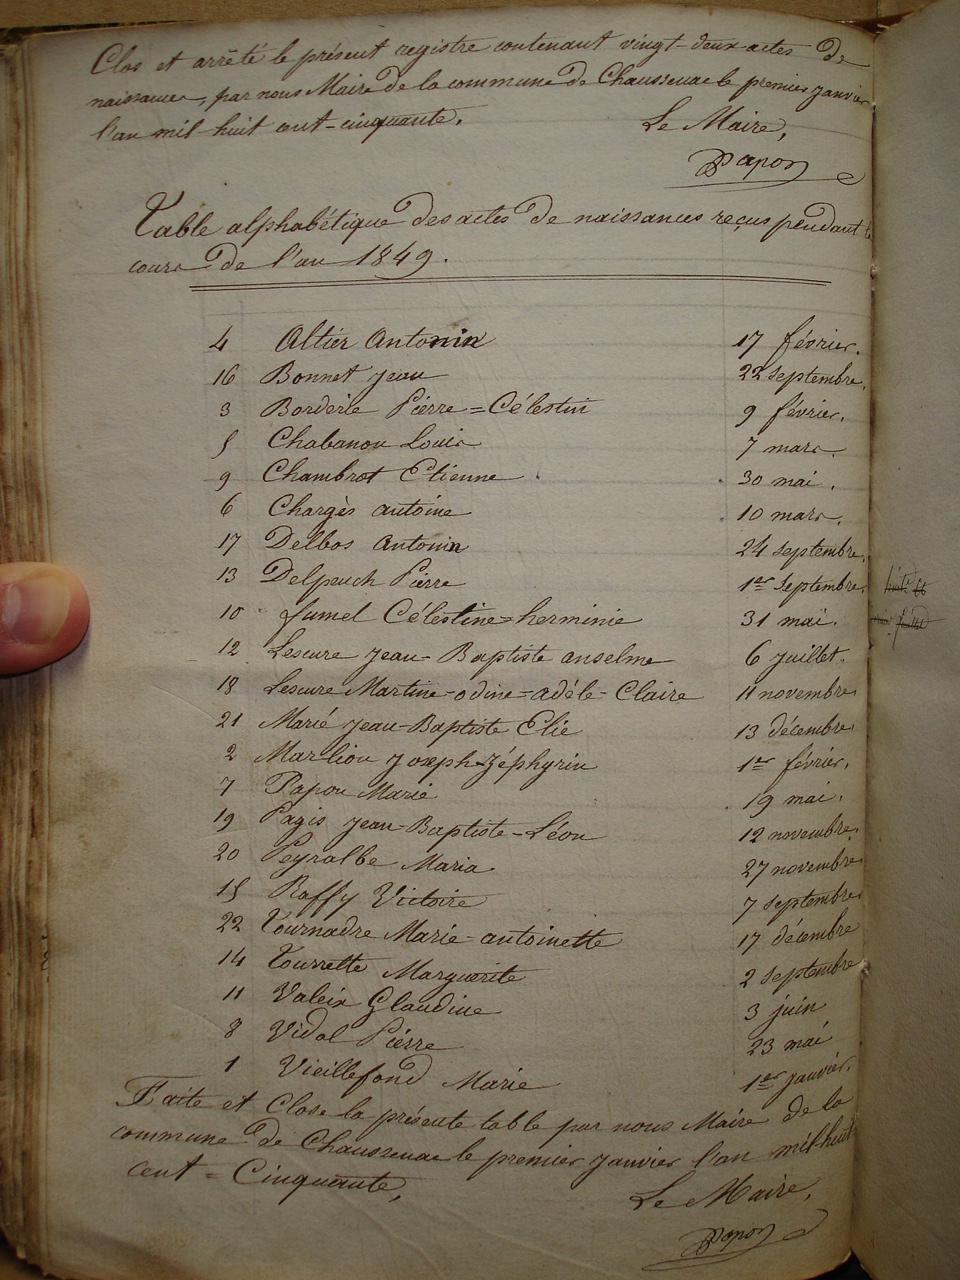 Clos et arrêté le présent registre contenant vingt-deux actes de
naissances, par nous Maire de la commune de Chaussenac le premier janvier
l'an mil huit cent-cinquante.
Le Maire,
Papon
Table alphabétique des actes de naissances reçus pendant le
cours de l'an 1849.
4 Altier Antonin 17 février.
16 Bonnet Jean 22 septembre.
3 Borderie Pierre=Célestin 9 février.
5 Chabanon Louis 7 mars.
9 Chambrot Etienne 30 mai.
6 Chargès antoine 10 mars.
17 Delbos Antonin 24 septembre.
13 Delpeuch Pierre 1er septembre.
10 fumel Célestine=herminie 31 mai.
12 Lescure Jean-Baptiste anselme 6 juillet.
18 Lescure Martine-odine=adèle-Claire 11 novembre
21 Marié Jean-Baptiste Elie 13 décembre
2 Marliou Joseph-Zéphyrin 1er février.
7 Papon Marie 19 mai.
19 Pagis Jean-Baptiste-Léon 12 novembre.
20 Peyralbe Maria 27 novembre
15 Raffy Victoire 7 septembre.
22 Tournadre Marie-antoinette 17 décembre
14 Tourrette Marguerite 2 septembre
11 Valeix Glaudine 3 juin
8 Vidal Pierre 23 mai
1 Vieillefond Marie 1er janvier.
Faite et Close la présente table par nous Maire de la
commune de Chaussenac le premier janvier l'an mil-huit
cent=Cinquante,
Le Maire,
Papon